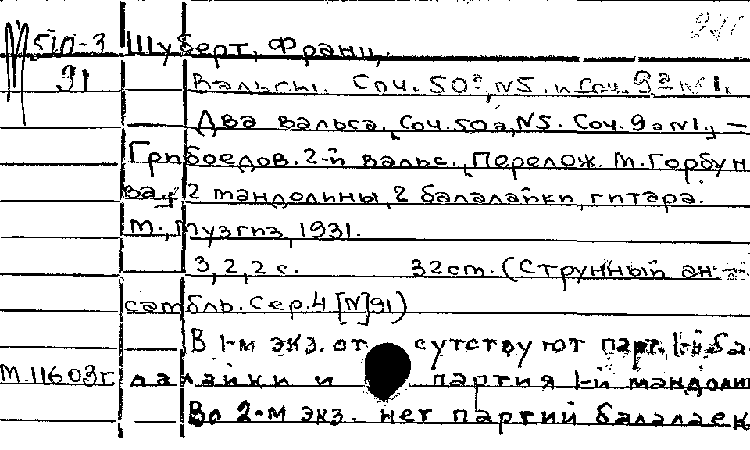 М 510-3 Шуберт, Франц.
91 Вальсы. Соч. 50а, N5. и Соч. 9а N1.
Два вальса, Соч. 50а, N5. Соч. 9а N1, —
Грибоедов. 2-й вальс. Перелож. М. Горбун
ва. 2 мандолины, 2 балалайки, гитара.
М., Музгиз, 1931.
3, 2, 2 с. 32 см. (Струнный ан-
самбль. Сер. 4 [N] 91)
В 1-м экз. отсутствуют парт. 1-й ба
М. 11603г лалайки и партия 1-й мандолин
Во 2-м экз. нет партий балалаек